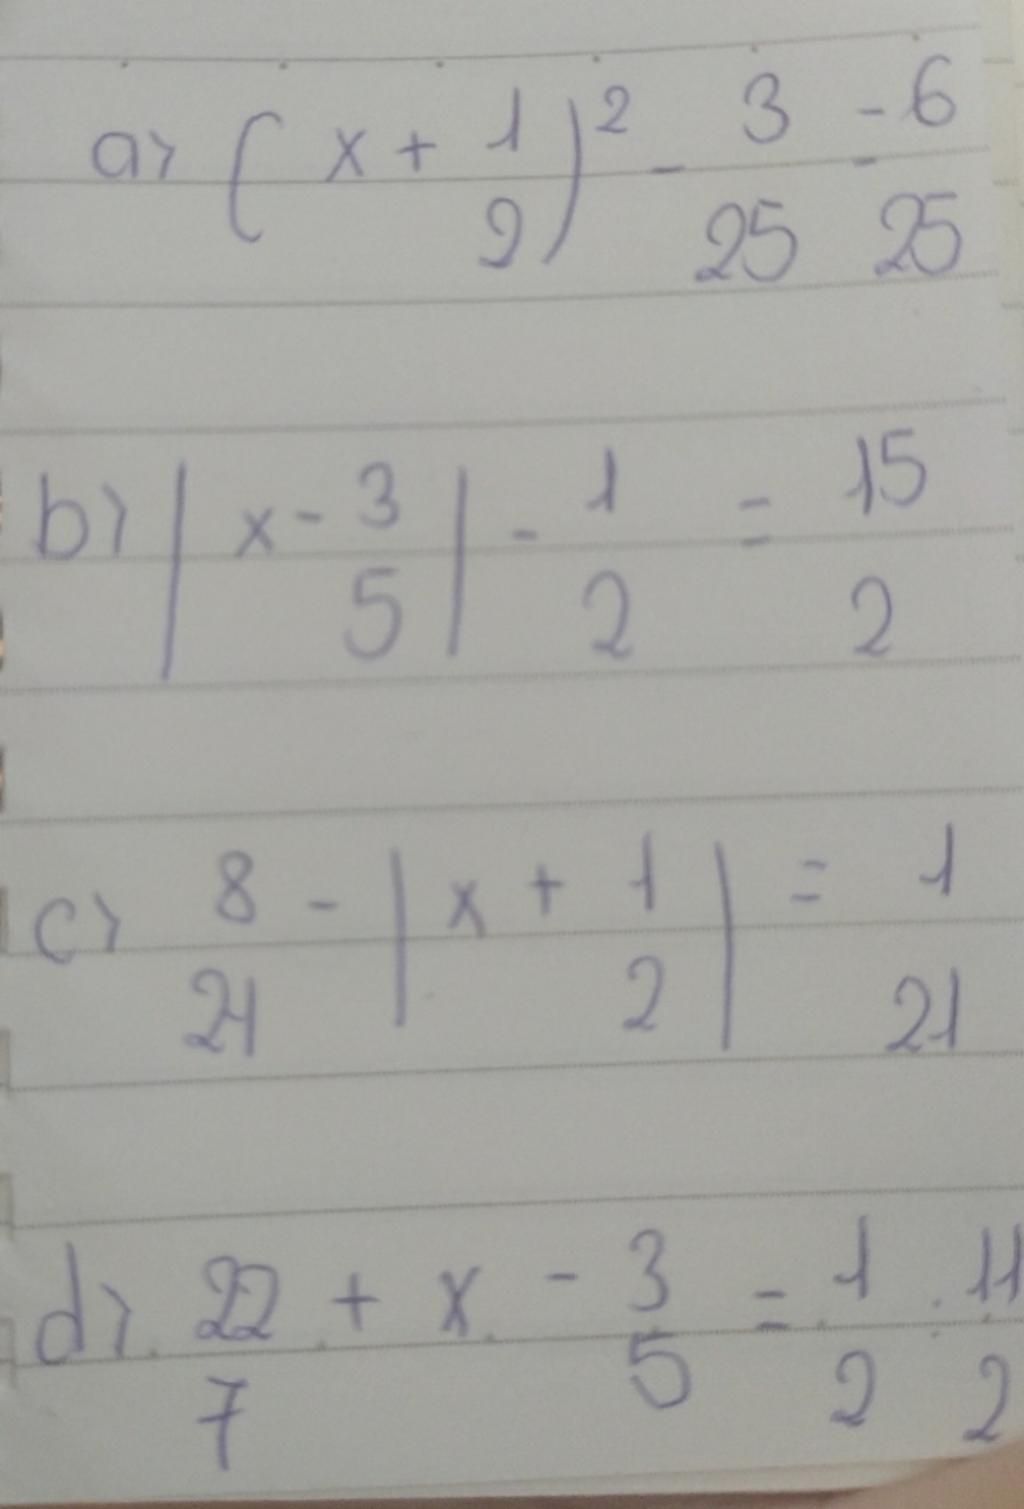 a) (x + 1/2)² - 3/25 = 6/25
b) |x - 3/5| - 1/2 = 15/2
c) 8/21 - |x + 1/2| = 1/21
d) 22/7 + x - 3/5 = 1/2 : 11/2